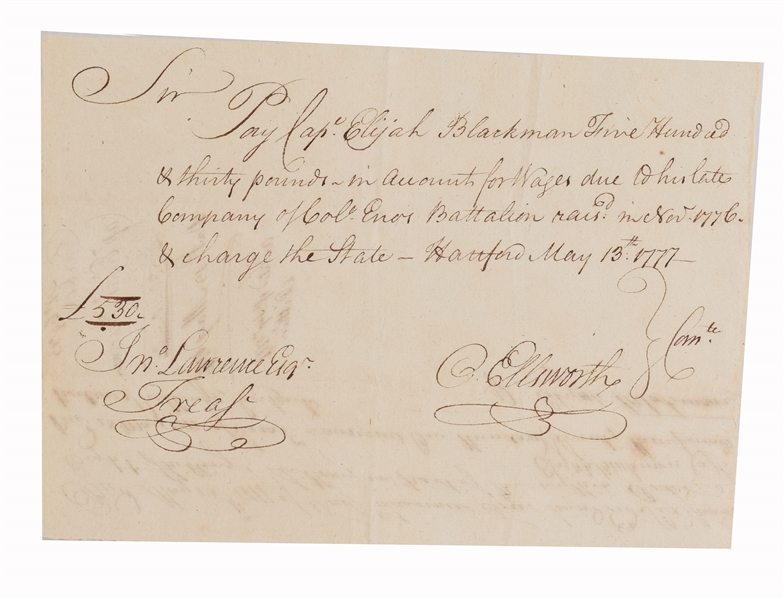 Sir
Pay Capt. Elijah Blackman Five Hundred
& thirty pounds - in account for Wages due to his late
Company of Colo. Enos Battalion raisd. in Novr. 1776.
& charge the State - Hartford May 13th. 1777
£530.
Jno. Lawrence Esqr.
Treasr
O. Ellsworth } Comte.